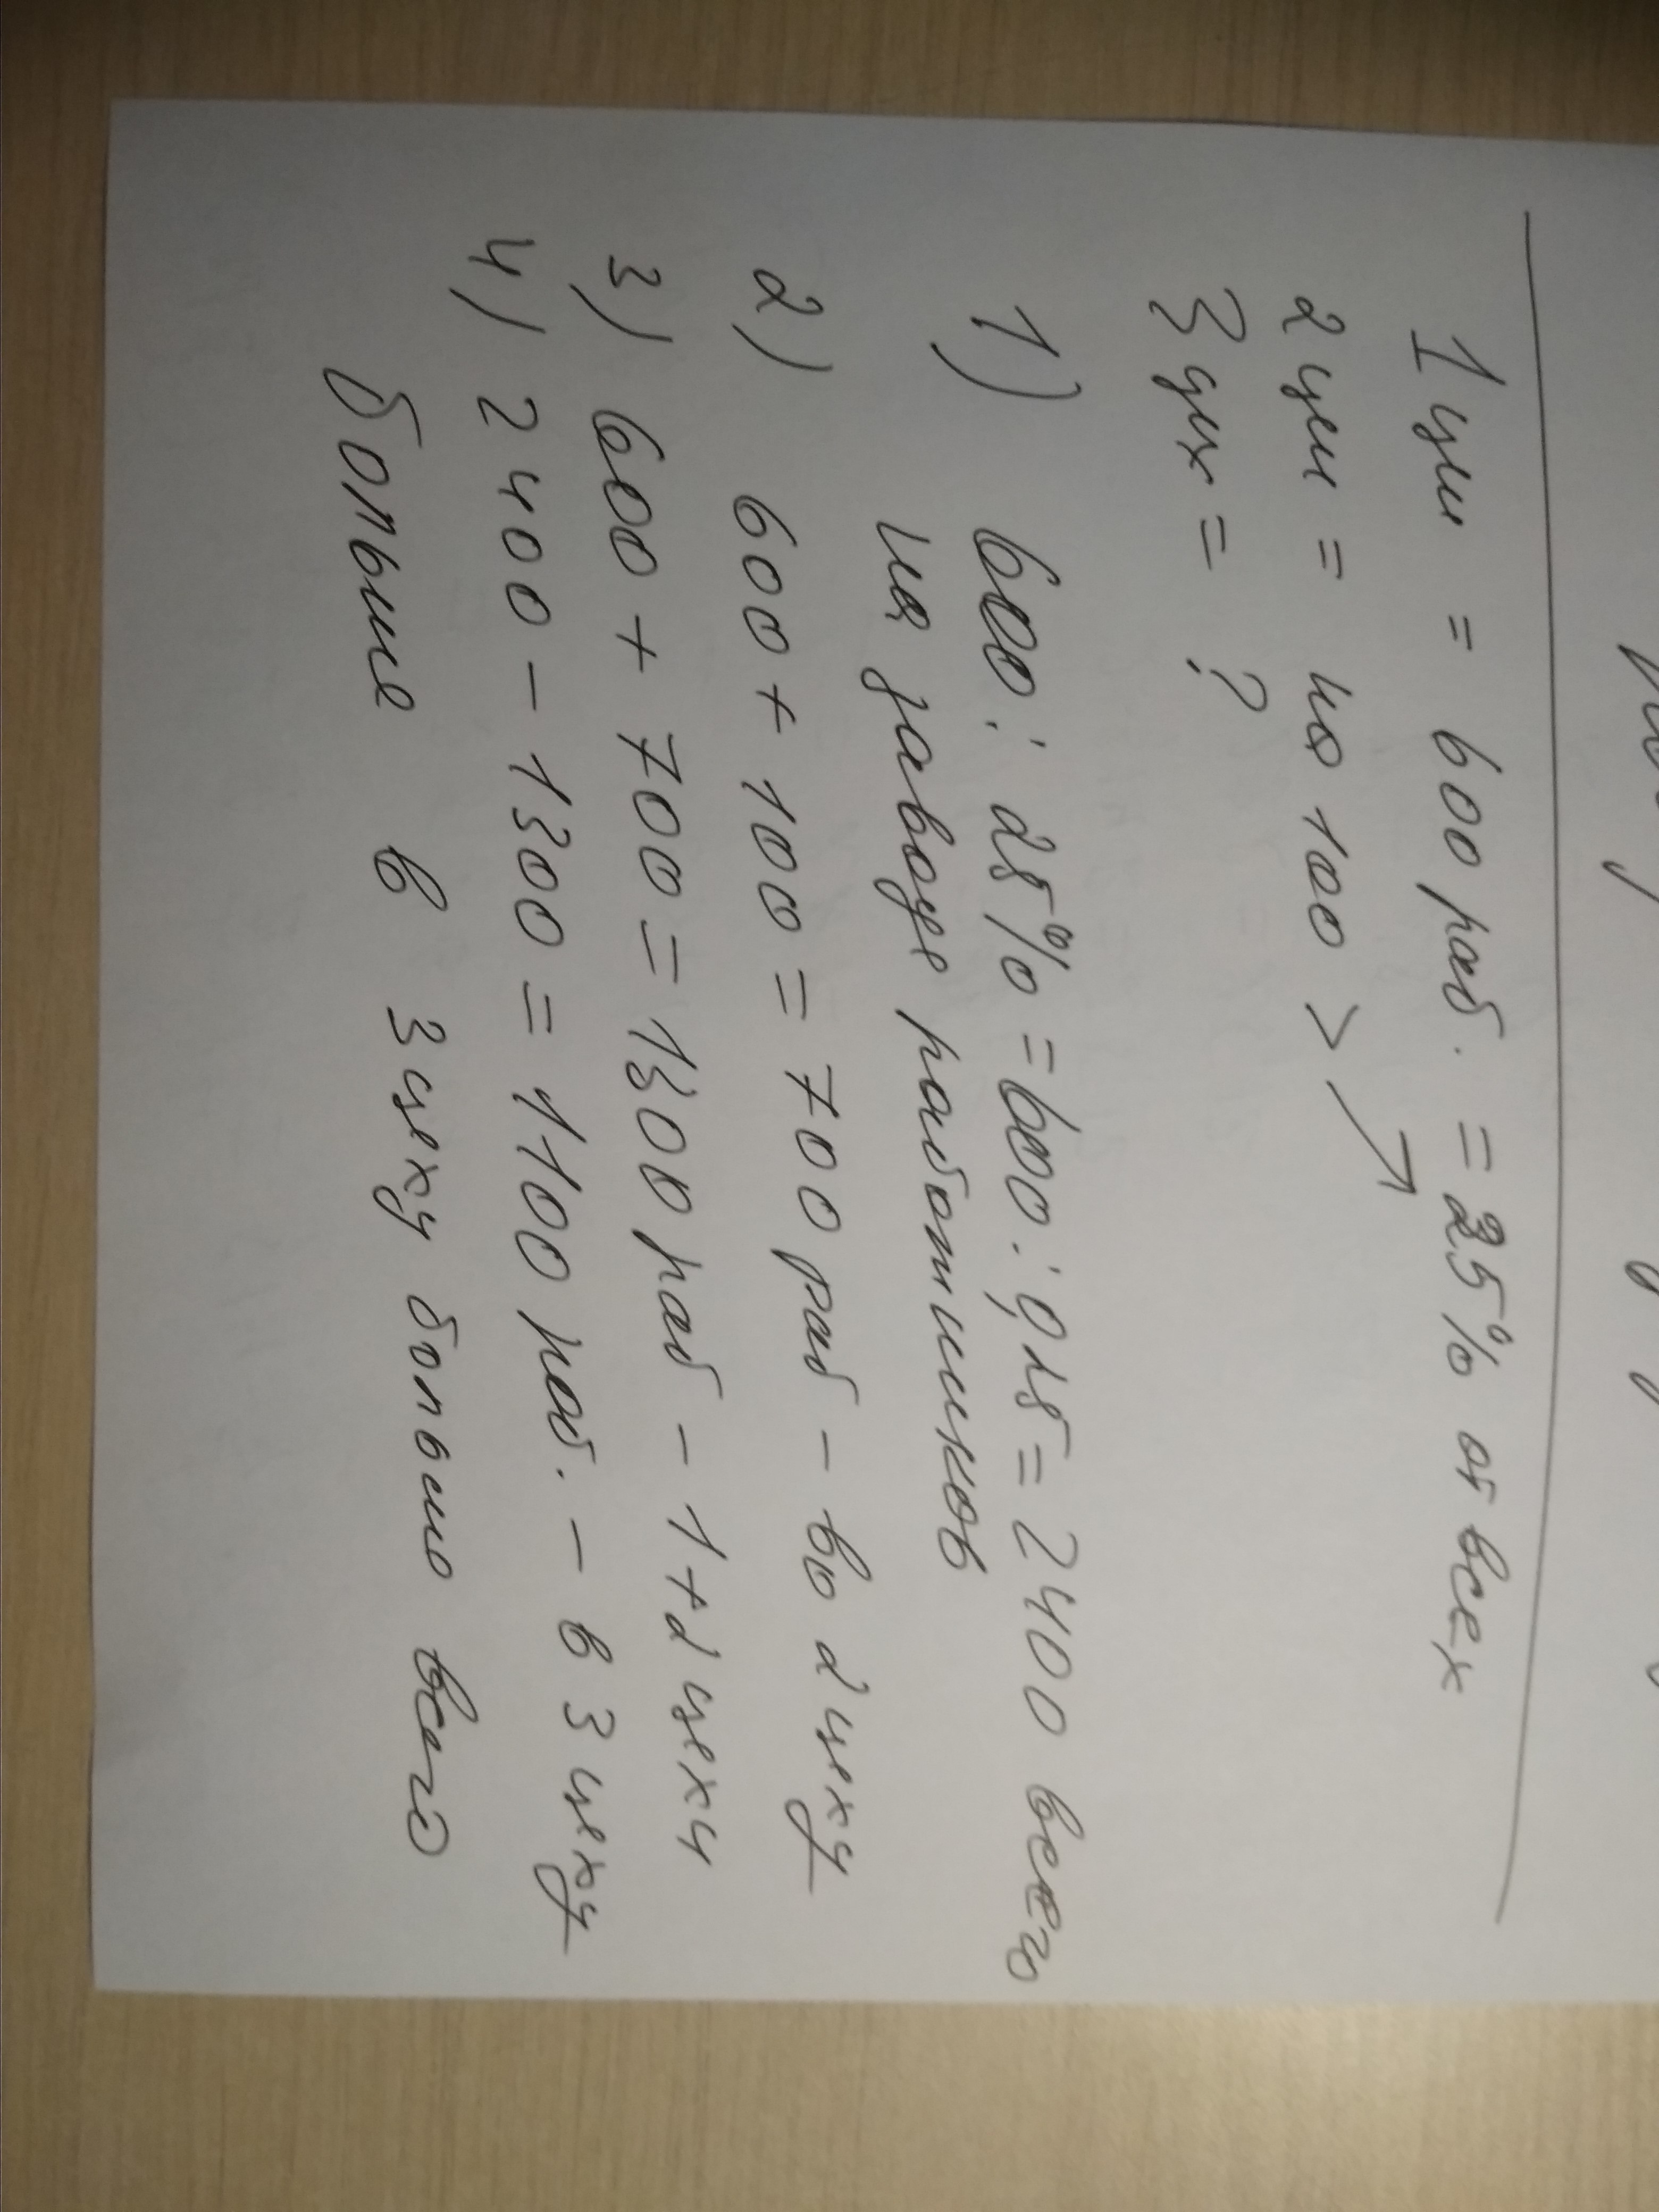 1 цех = 600 раб. = 25% от всех
2 цех = на 100 >
3 цех = ?
1) 600 : 25% = 600 : 0,25 = 2400 всего
на заводе работников
2) 600 + 100 = 700 раб - во 2 цеху
3) 600 + 700 = 1300 раб - 1+2 цеху
4) 2400 - 1300 = 1100 раб. - в 3 цеху
больше в 3 цеху больше всего